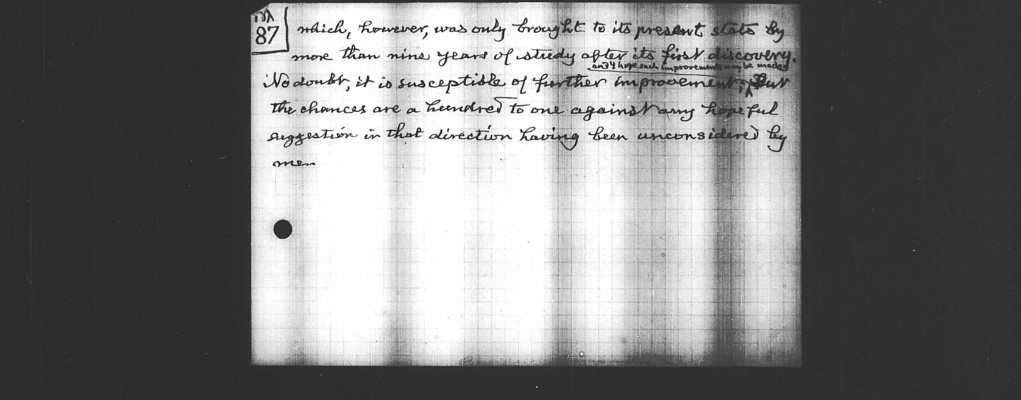 87
which, however, was only brought to its present state by
more than nine years of study after its first discovery.
and I hope such improvements may be made
No doubt, it is susceptible of further improvement; But
the chances are a hundred to one against any hopeful
suggestion in that direction having been unconsidered by
me.